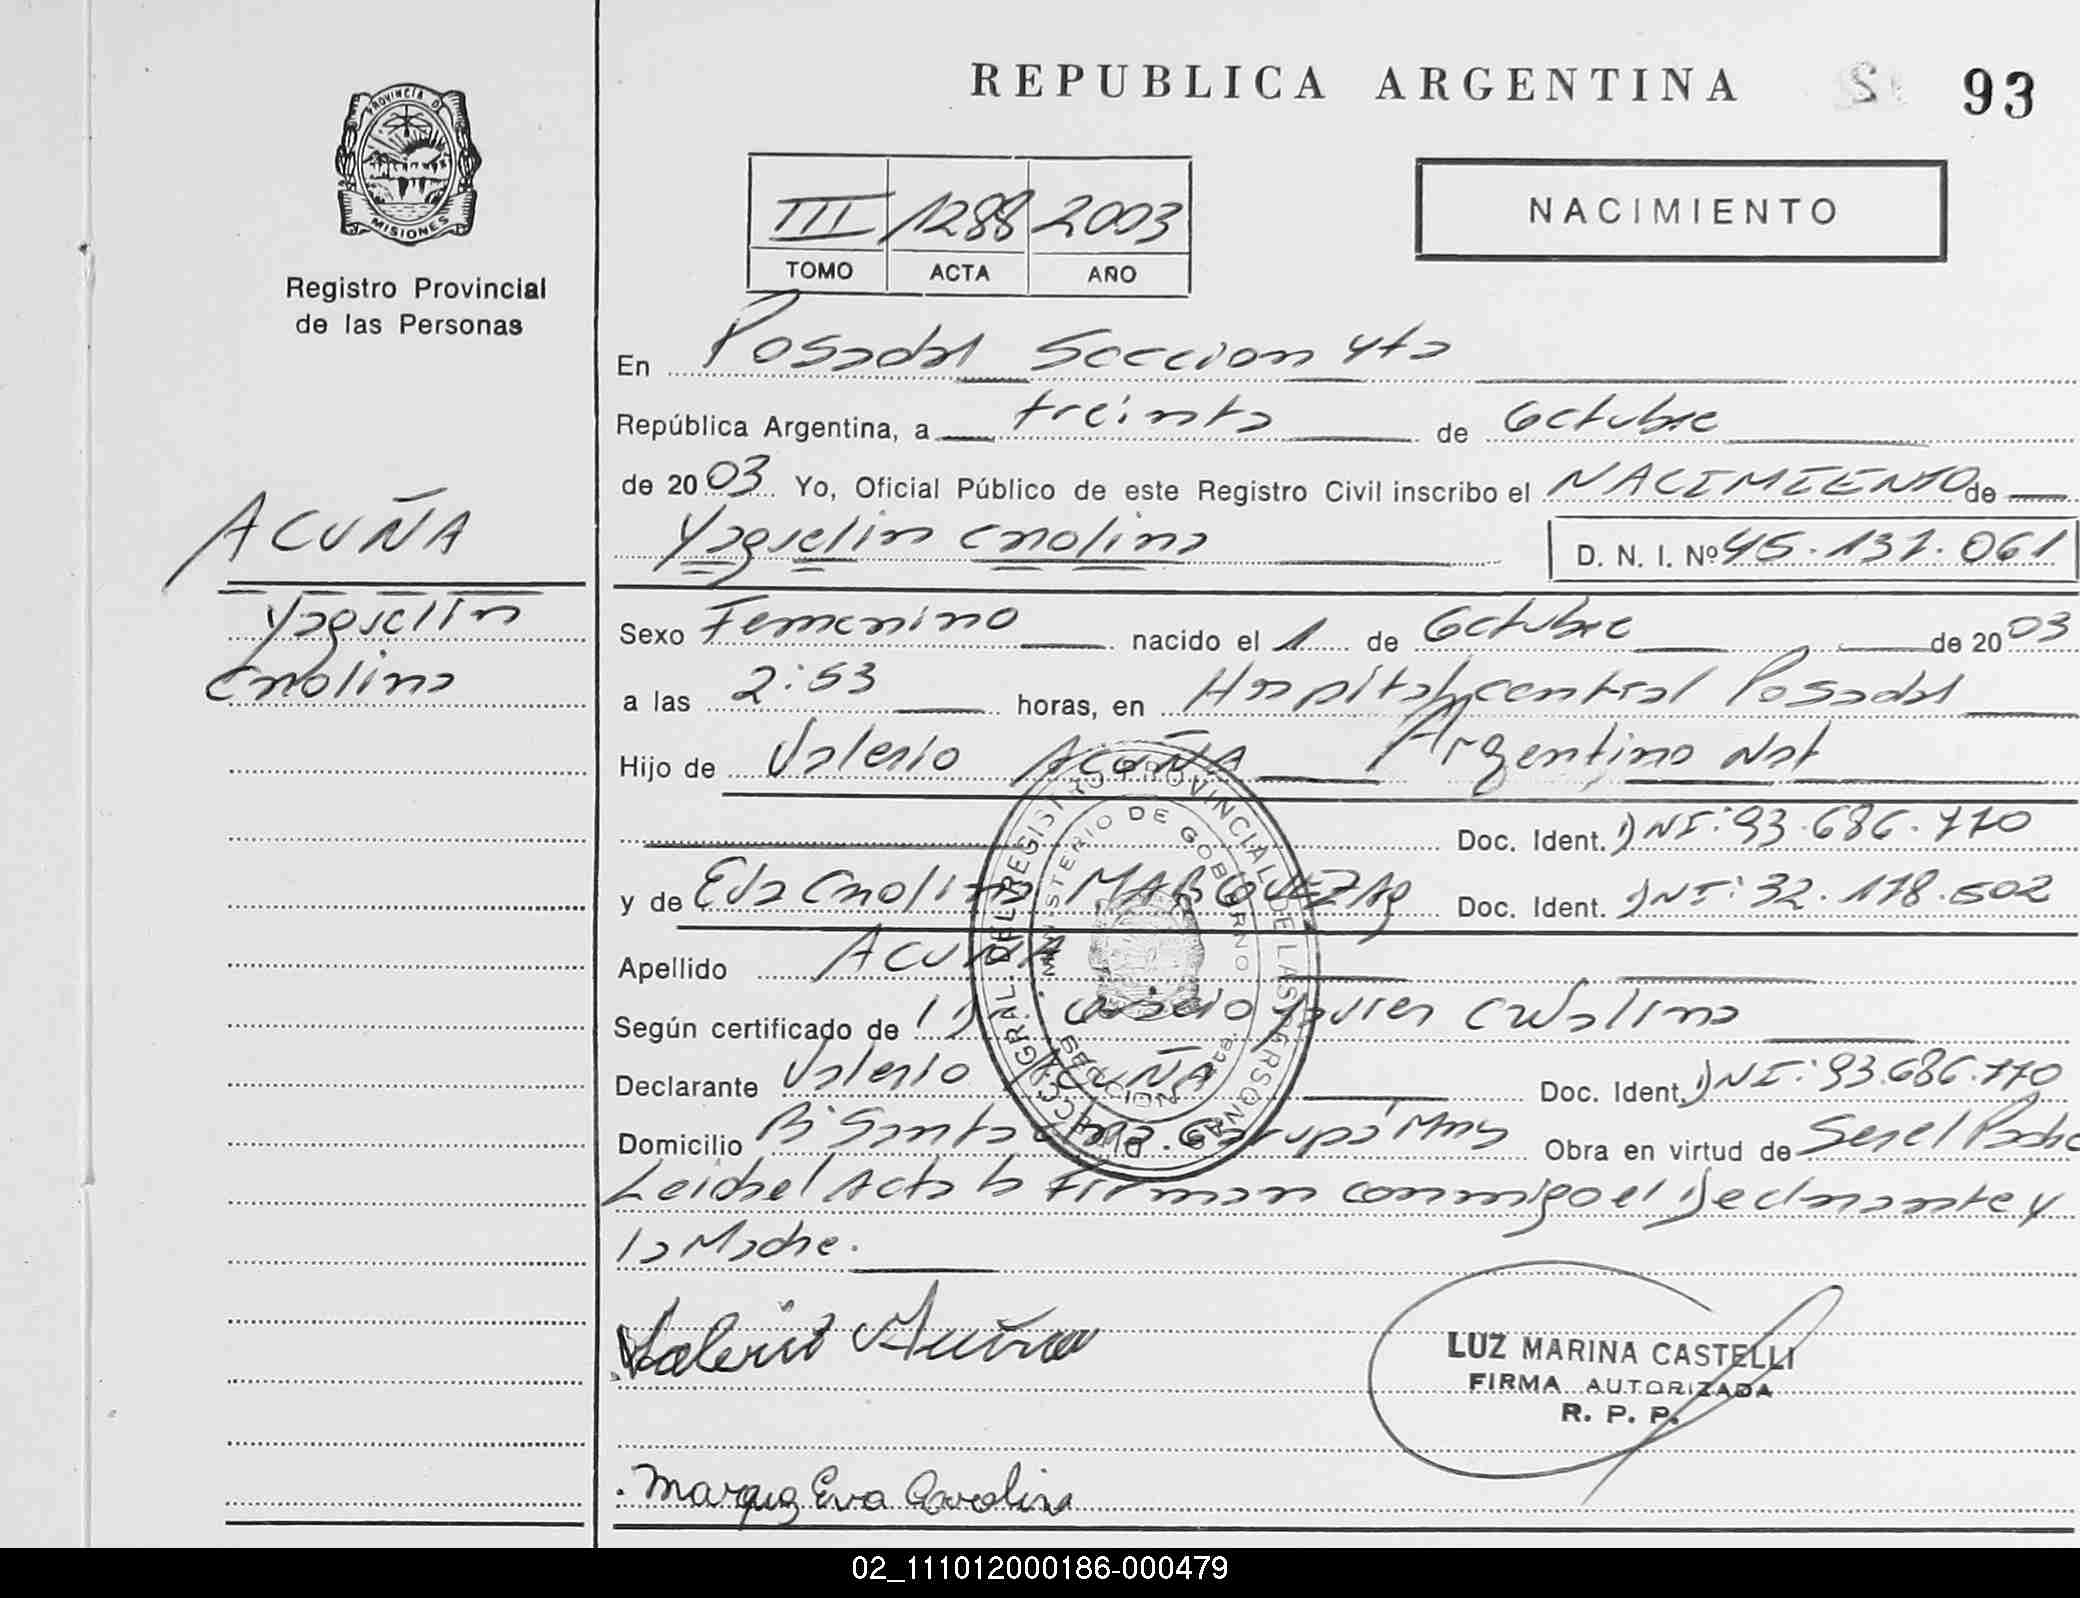 REPUBLICA ARGENTINA 93
PROVINCIA DE
MISIONES
Registro Provincial
de las Personas
III 1288 2003
TOMO ACTA AÑO
NACIMIENTO
En Posadas Seccion 4ta
República Argentina, a treinta de Octubre
de 2003 Yo, Oficial Público de este Registro Civil inscribo el NACIMIENTO de
Yaquelin Carolina D. N. I. Nº 45.131.061
ACUÑA
Yaquelin
Carolina
Sexo Femenino nacido el 1 de Octubre de 2003
a las 2:53 horas, en Hospital central Posadas
Hijo de Valerio ACUÑA Argentino Nat
Doc. Ident. DNI: 93.686.770
y de Eva Carolina MARQUEZ Arg Doc. Ident. DNI: 32.178.502
Apellido ACUÑA
Según certificado de Javier
Declarante Valerio ACUÑA Doc. Ident. DNI: 93.686.770
Domicilio Bº Santa Garupá Mns Obra en virtud de Ser el Padre
Leida el Acta la Firman conmigo el Declarante y
la Madre.
Valerio Acuña
LUZ MARINA CASTELLI
FIRMA AUTORIZADA
R. P. P.
Marquez Eva Carolina
DIRECC. GRAL. DEL REGISTRO PROVINCIAL DE LAS PERSONAS
MINISTERIO DE GOBIERNO
02_111012000186-000479